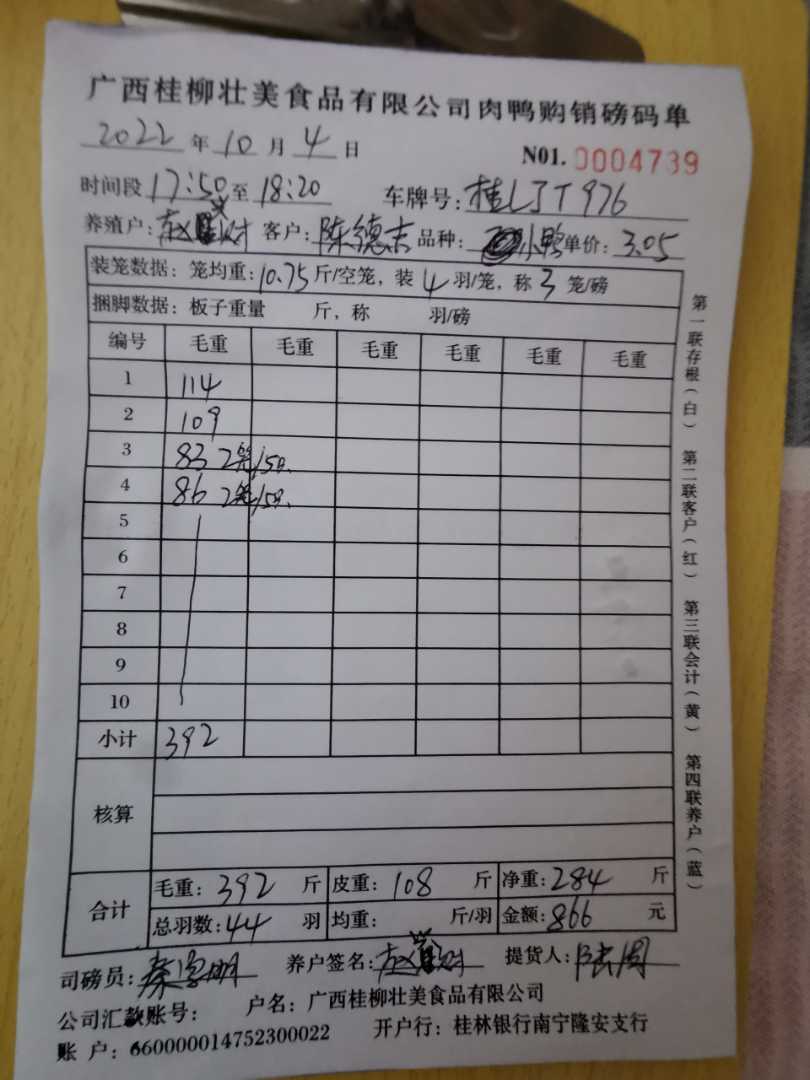 广西桂柳壮美食品有限公司肉鸭购销磅码单
2022 年 10 月 4 日 N01. 0004739
时间段 17:50 至 18:20 车牌号: 桂LJT976
养殖户: 赵 财 客户: 陈德志 品种: 小鸭 单价: 3.05
装笼数据: 笼均重: 10.75 斤/空笼, 装 4 羽/笼, 称 3 笼/磅
捆脚数据: 板子重量 斤, 称 羽/磅
编号 毛重 毛重 毛重 毛重 毛重 毛重
1 114
2 109
3 83 2笼/5只.
4 86 2笼/5只.
5
6
7
8
9
10
小计 392
核算
合计 毛重: 392 斤 皮重: 108 斤 净重: 284 斤
总羽数: 44 羽 均重: 斤/羽 金额: 866 元
司磅员: 养户签名: 赵 财 提货人:
公司汇款账号: 户名: 广西桂柳壮美食品有限公司
账 户: 660000014752300022 开户行: 桂林银行南宁隆安支行
第一联存根(白) 第二联客户(红) 第三联会计(黄) 第四联养户(蓝)